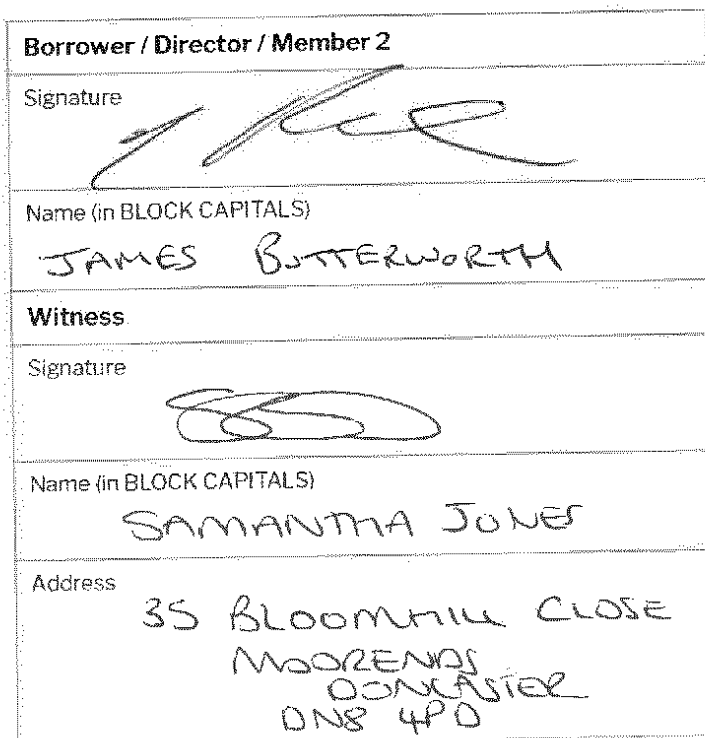 Borrower / Director / Member 2
Signature
Name (in BLOCK CAPITALS)
JAMES BUTTERWORTH
Witness
Signature
Name (in BLOCK CAPITALS)
SAMANTHA JONES
Address
35 BLOOMHILL CLOSE
MOORENDS
DONCASTER
DN8 4PD